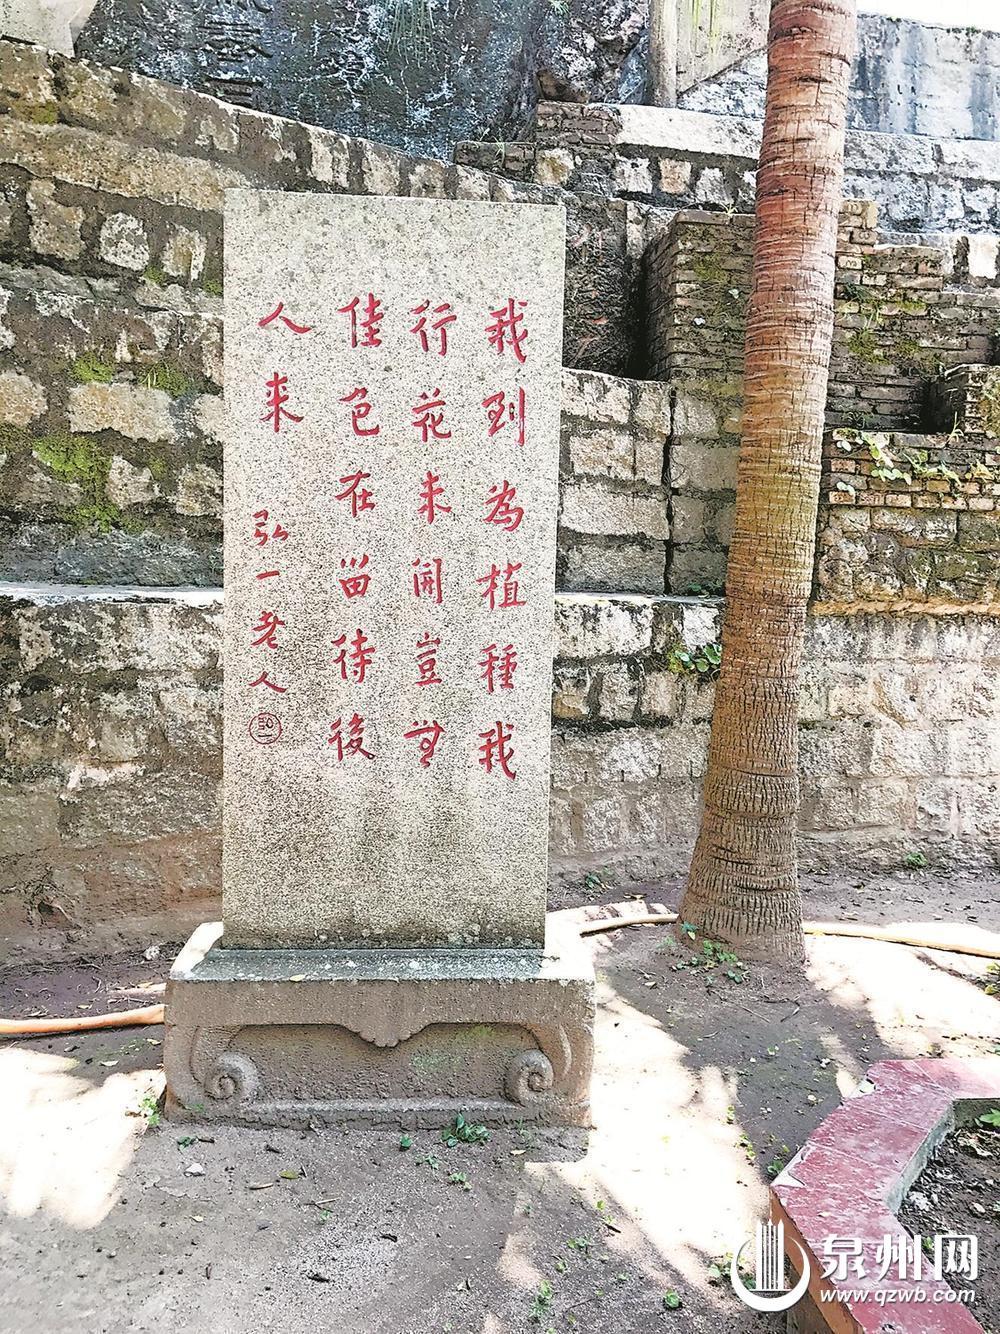 我到為植種我
行花未開豈無
佳色在畄待後
人来
弘一老人
泉州网
www.qzwb.com